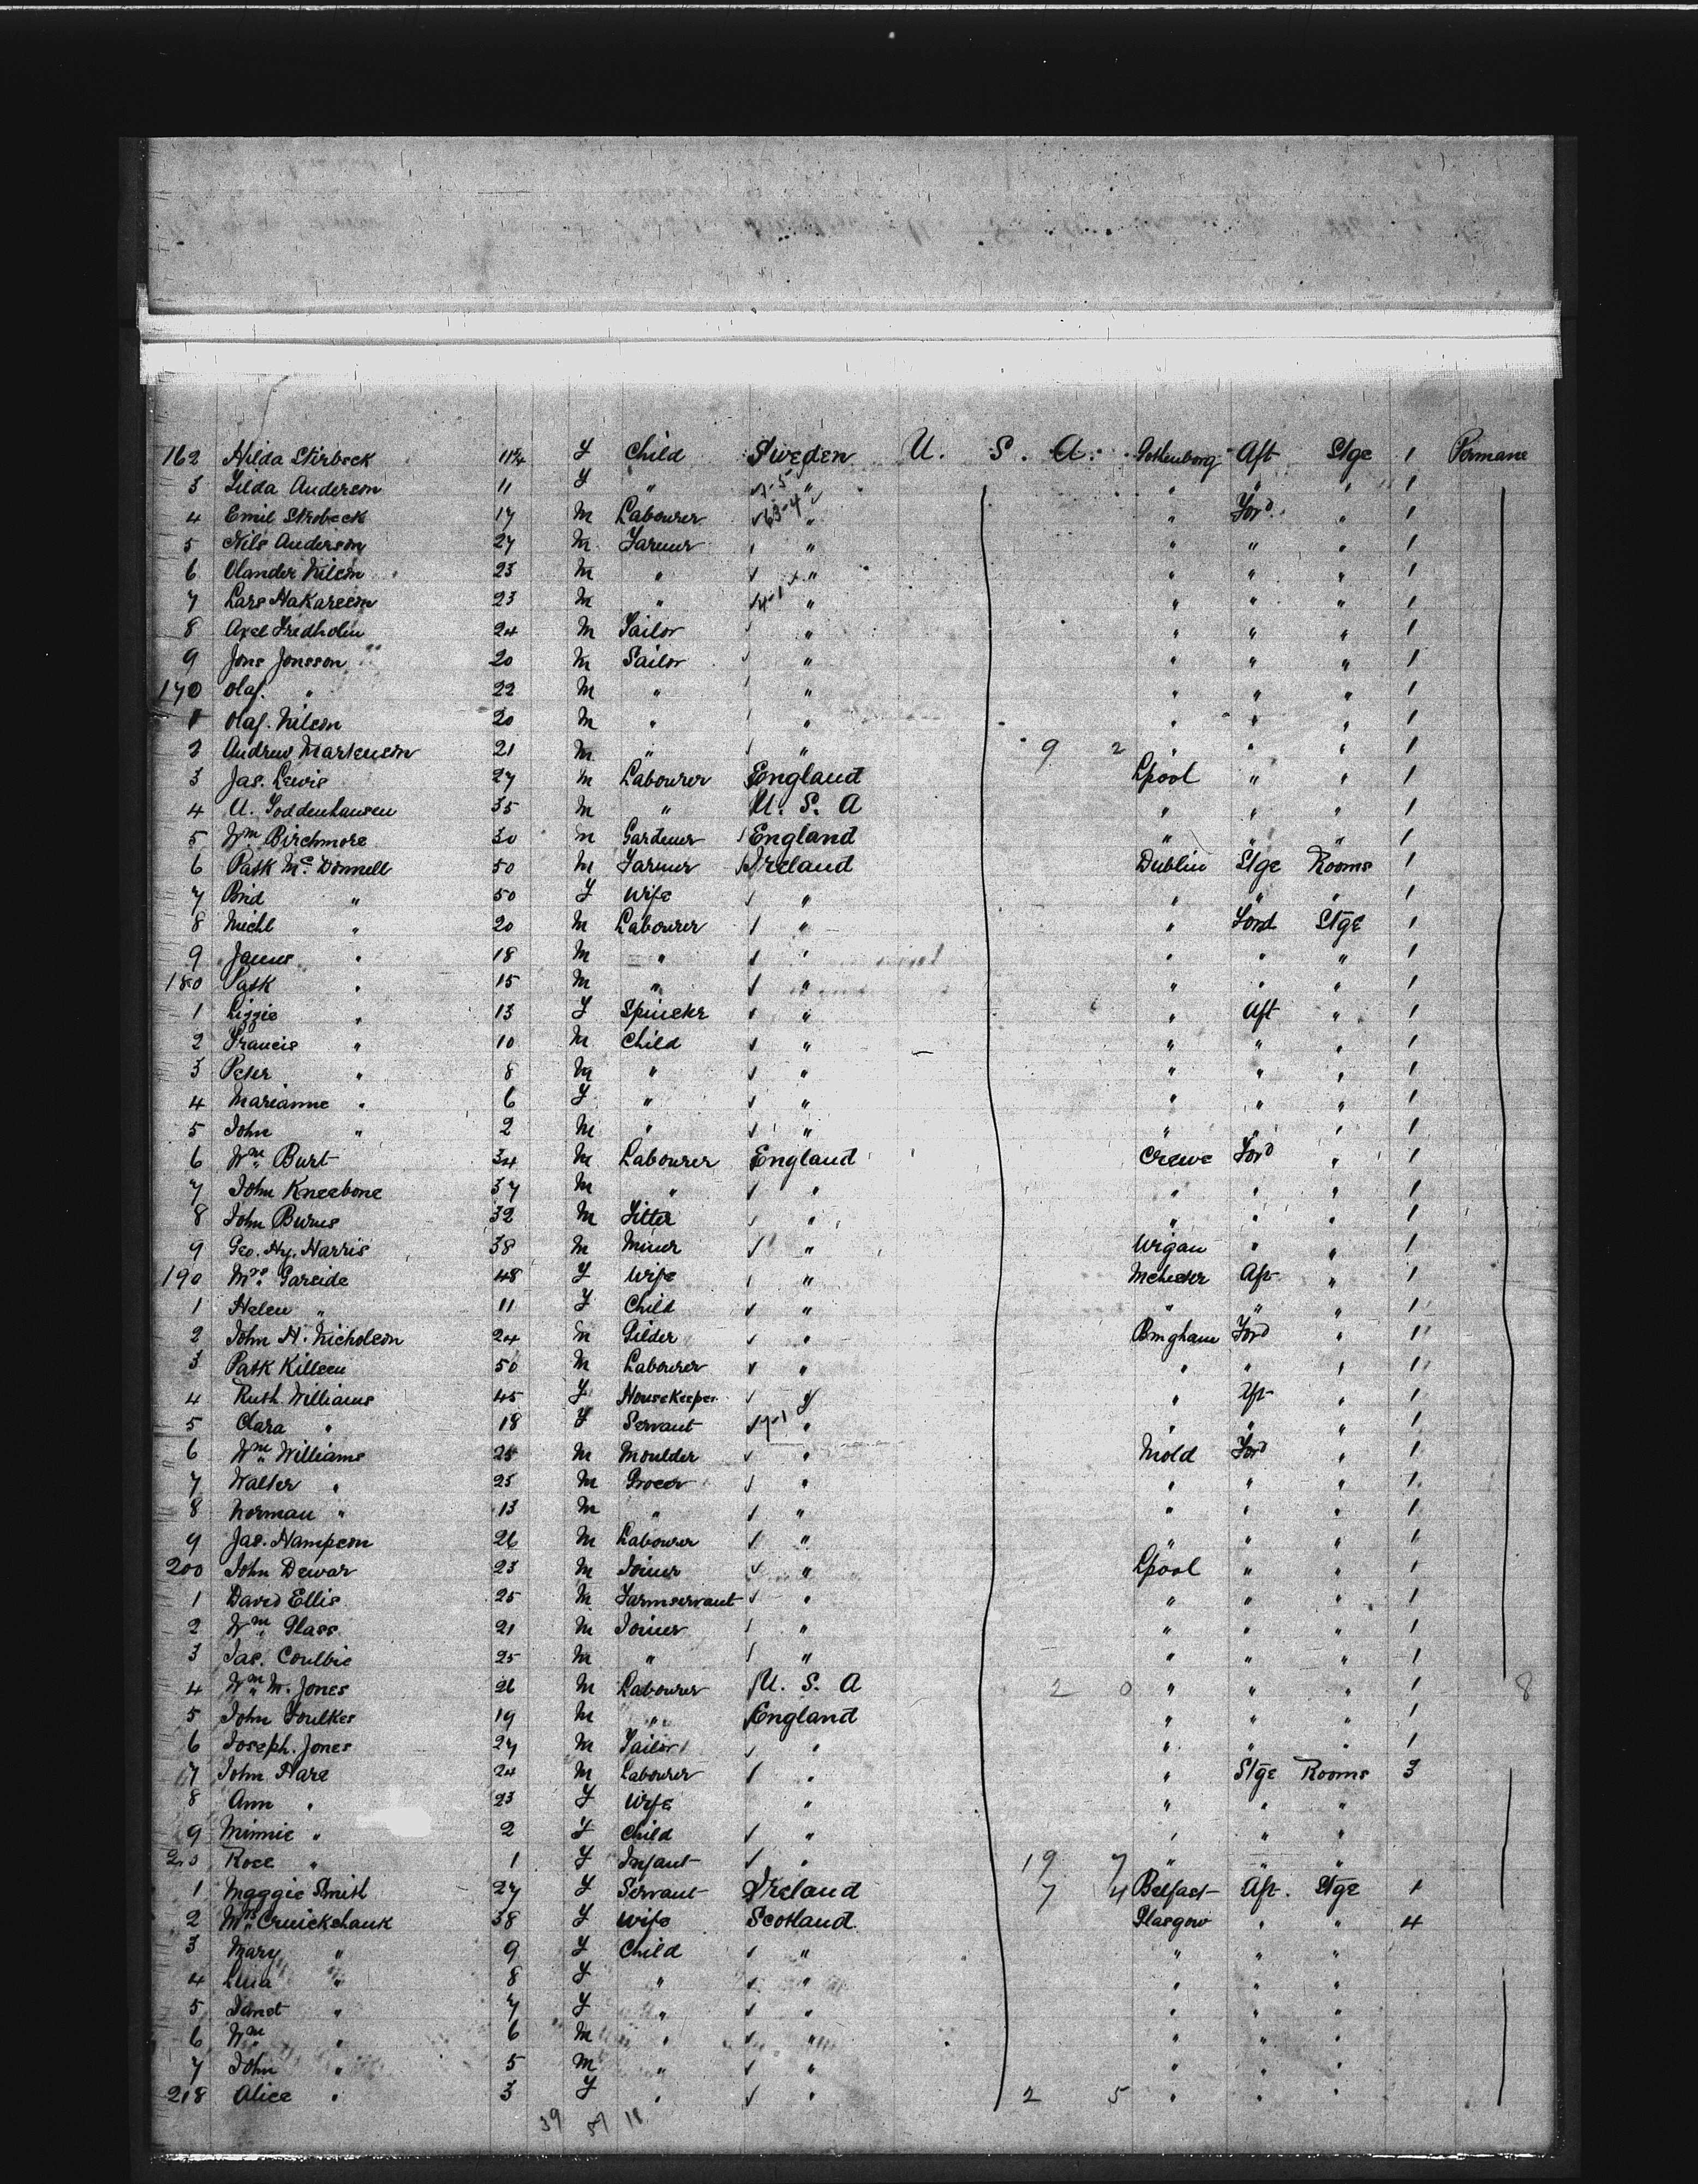 162 Hilda Stirbeck 11¾ F Child Sweden U. S. A. Gothenborg Aft Stge 1 Permane
3 Hilda Anderson 11 F " " " " " 1
4 Emil Strobeck 17 M Labourer 63-4 " " Ford " 1
5 Nils Anderson 27 M Farmer " " " " 1
6 Olander Nilson 23 M " " " " " 1
7 Lars Hakarson 23 M " " " " " 1
8 Axel Fredholm 24 M Tailor " " " " 1
9 Jons Jonsson 20 M Sailor " " " " 1
170 Olaf. " 22 M " " " " " 1
1 Olaf. Nilson 20 M " " " " " 1
2 Andrew Martenson 21 M " " 9 2 " " " 1
3 Jas. Lewis 27 M Labourer England Lpool " " 1
4 A. Foddenhausen 35 M " U. S. A " " " 1
5 Wm Birchmore 30 M Gardener England " " " 1
6 Patk McDonnell 50 M Farmer Ireland Dublin Stge Rooms 1
7 Brid " 50 F Wife " " " " 1
8 Michl " 20 M Labourer " " Ford Stge 1
9 James " 18 M " " " " " 1
180 Patk " 15 M " " " " " 1
1 Lizzie " 13 F Spinster " " Aft " 1
2 Francis " 10 M Child " " " " 1
3 Peter " 8 M " " " " " 1
4 Marianne " 6 F " " " " " 1
5 John " 2 M " " " " " 1
6 Wm Burt 34 M Labourer England Crewe Ford " 1
7 John Kneebone 37 M " " " " " 1
8 John Burns 32 M Fitter " " " " 1
9 Geo. Hy. Harris 38 M Miner " Wigan " " 1
190 Mrs. Garside 48 F Wife " Mchester Aft " 1
1 Helen " 11 F Child " " " " 1
2 John H. Nicholson 24 M Gilder " Bmgham Ford " 1
3 Patk Killeen 50 M Labourer " " " " 1
4 Ruth Williams 45 F Housekeeper " " Aft " 1
5 Clara " 18 F Servant " " " " 1
6 Wm Williams 25 M Moulder " Mold Ford " 1
7 Walter " 25 M Grocer " " " " 1
8 Norman " 13 M " " " " " 1
9 Jas. Hampson 26 M Labourer " " " " 1
200 John Dewar 23 M Joiner " Lpool " " 1
1 David Ellis 25 M Farmservant " " " " 1
2 Wm Glass 21 M Joiner " " " " 1
3 Jas. Coulbie 25 M " " " " " 1
4 Wm M. Jones 26 M Labourer U. S. A 2 0 " " " 1 8
5 John Foulkes 19 M " England " " " 1
6 Joseph. Jones 27 M Tailor " " " " 1
7 John Hare 24 M Labourer " " Stge Rooms 3
8 Ann " 23 F Wife " " " "
9 Minnie " 2 F Child " " " "
Rose " 1 F Infant " 19 7 " " "
1 Maggie Smith 27 F Servant Ireland 7 4 Belfast Aft. Stge 1
2 Mrs. Cruickshank 38 F Wife Scotland Glasgow " " 4
3 Mary " 9 F Child " " " "
4 " 8 F " " " " "
5 Janet " 7 F " " " " "
6 Wm " 6 M " " " " "
7 John " 5 M " " " " "
218 Alice " 3 F " " 2 5 " " "
39 18